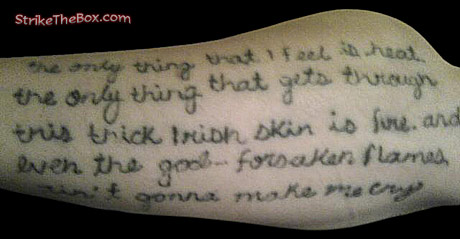 StrikeTheBox.com
the only thing that I feel is heat
the only thing that gets through
this trick Irish skin is fire. and
even the god-forsaken flames
ain't gonna make me cry